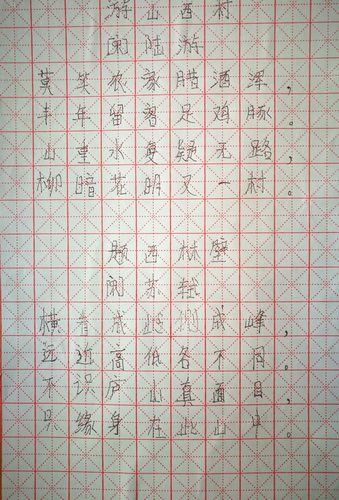 游山西村
[宋]陆游
莫笑农家腊酒浑，
丰年留客足鸡豚。
山重水复疑无路，
柳暗花明又一村。
题西林壁
[宋]苏轼
横看成岭侧成峰，
远近高低各不同。
不识庐山真面目，
只缘身在此山中。